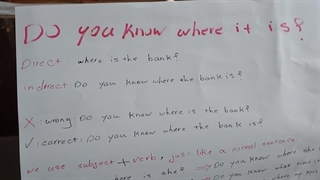 Do you know where it is?
Direct where is the bank?
indirect Do you know where the bank is?
X: wrong: Do you know where is the bank?
✓: correct: Do you know where the bank is?
we use subject + verb, just like a normal sentence
here is she? → Do you know where she